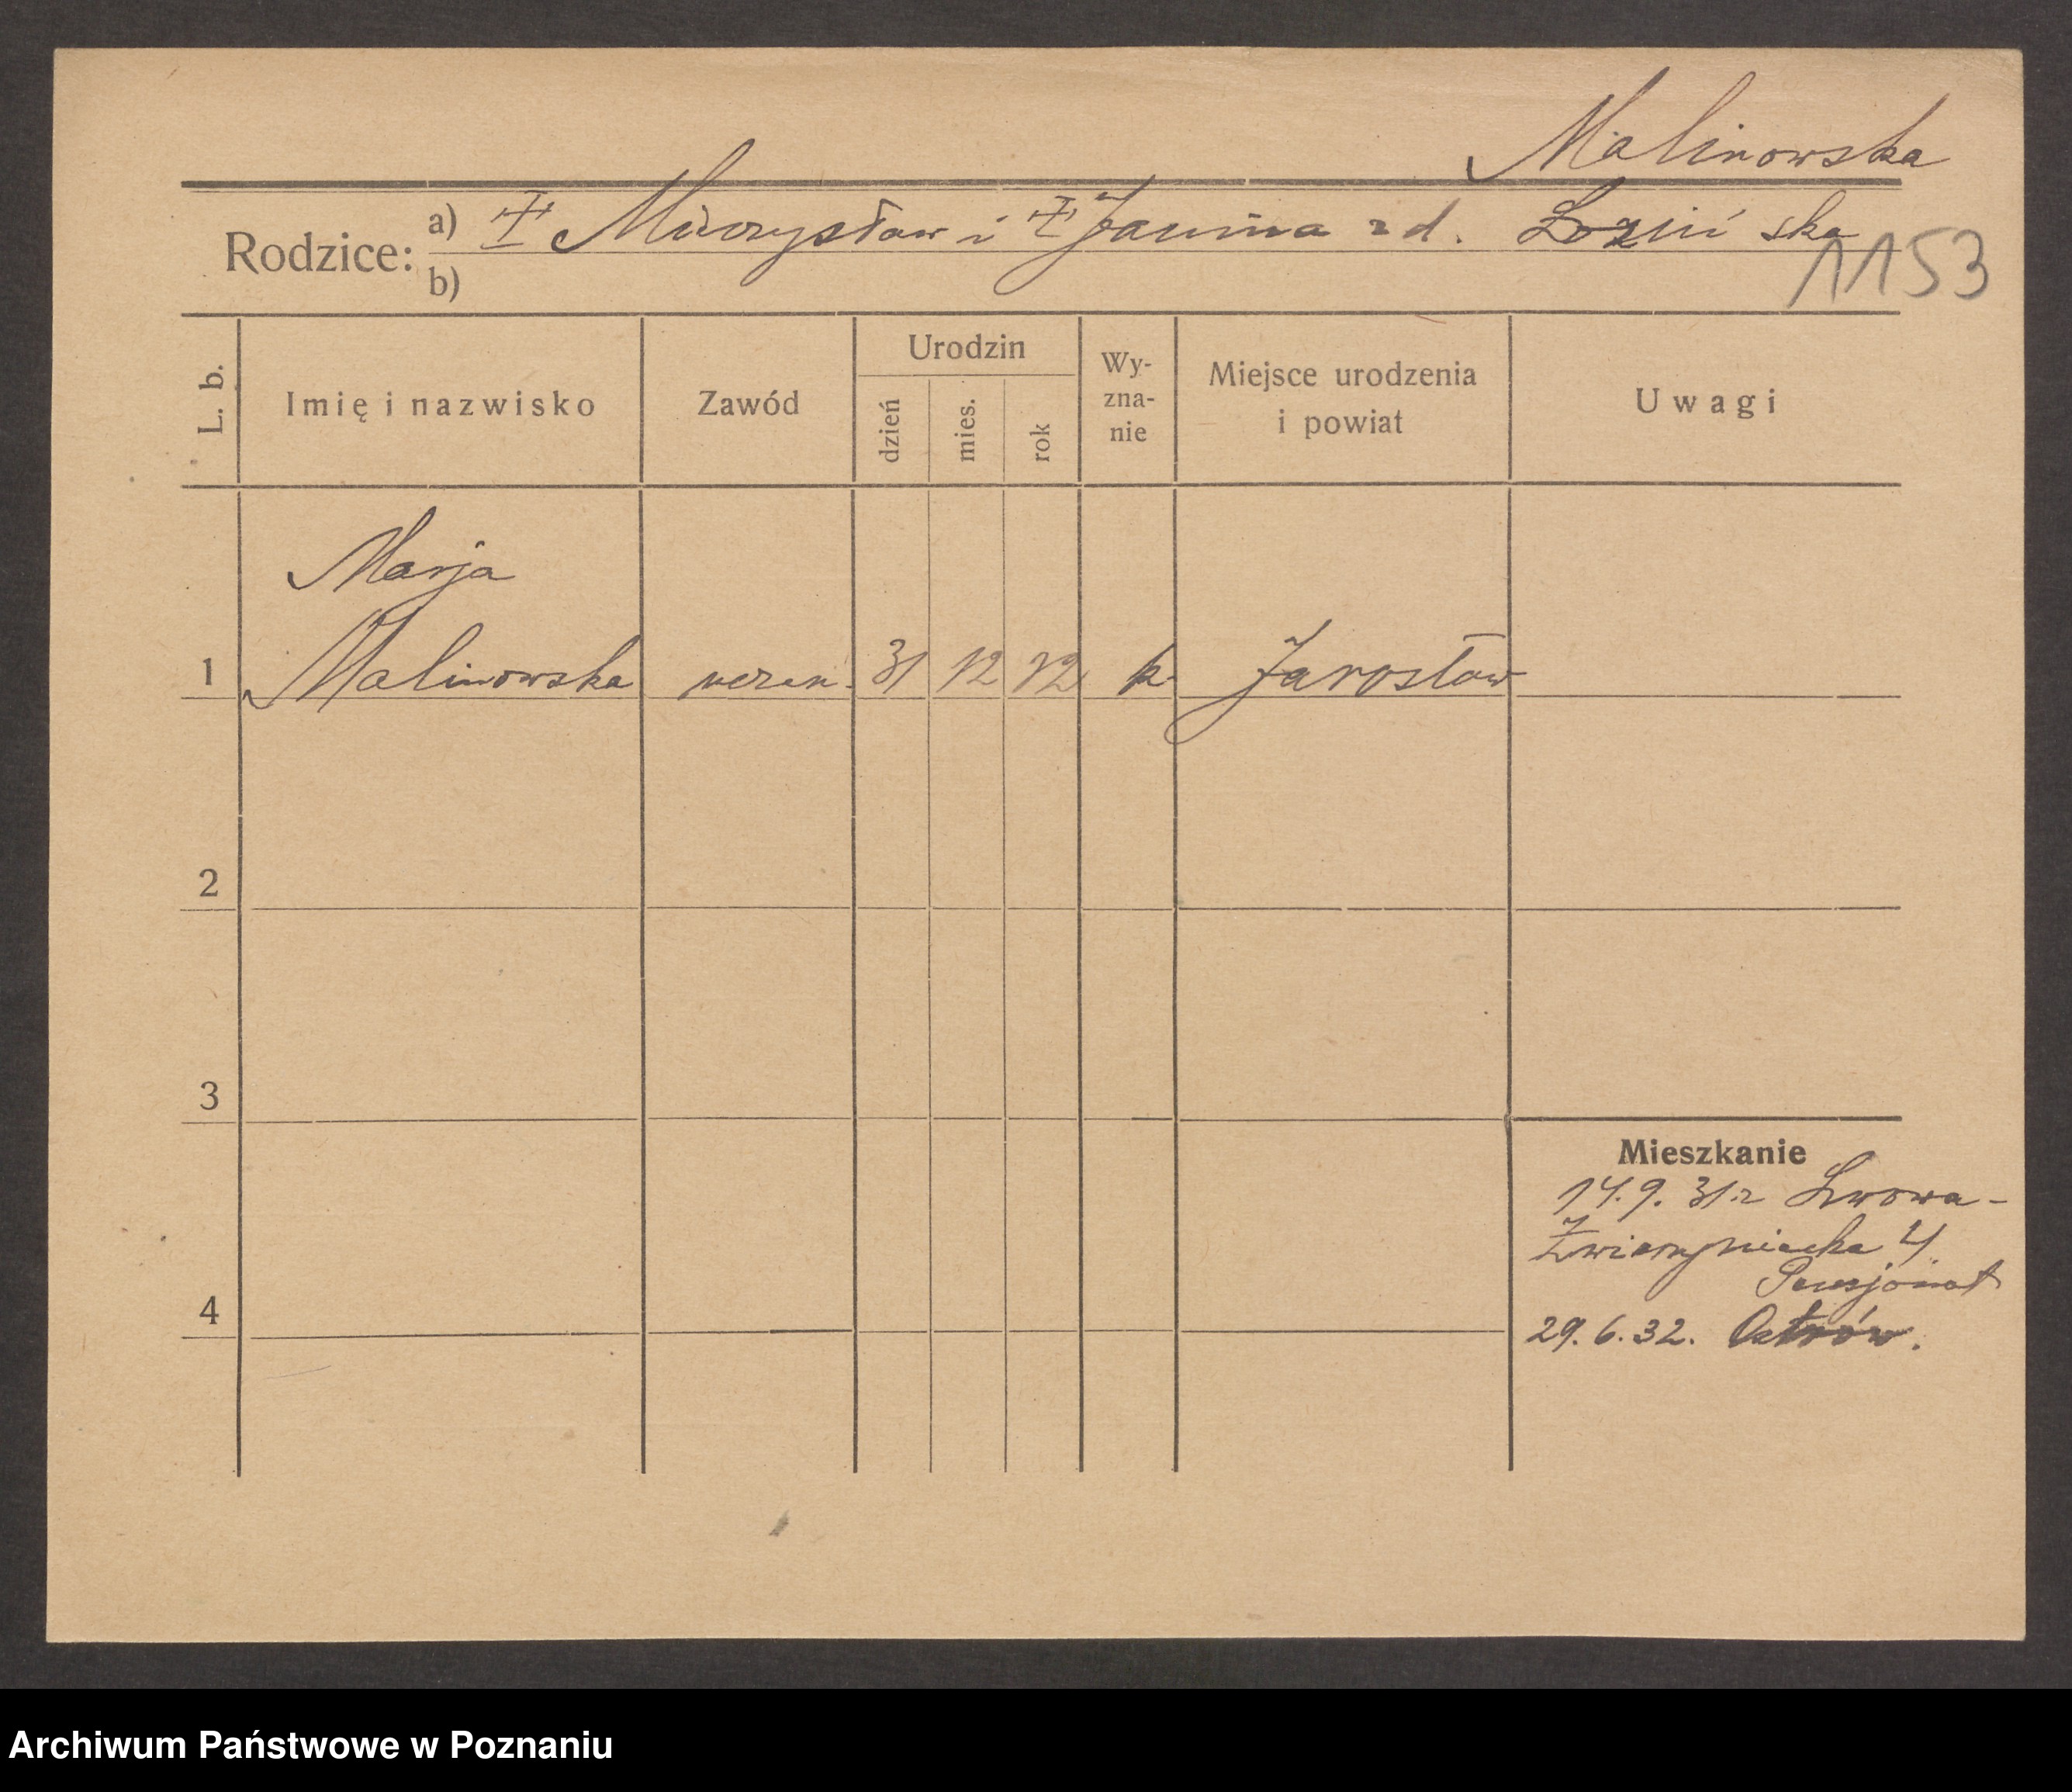 Malinowska
Rodzice: a) Mieczysław i Janina zd. Łozińska
b)
1153
L. b.
Imię i nazwisko
Zawód
Urodzin
dzień
mies.
rok
Wy-
zna-
nie
Miejsce urodzenia
i powiat
Uwagi
Marja
1 Malinowska uczen. 31 12 12 k. Jarosław
2
3
Mieszkanie
14.9.31 z Lwowa-
Zwierzyniecka 4
Pensjonat
4
29.6.32. Ostrów.
Archiwum Państwowe w Poznaniu